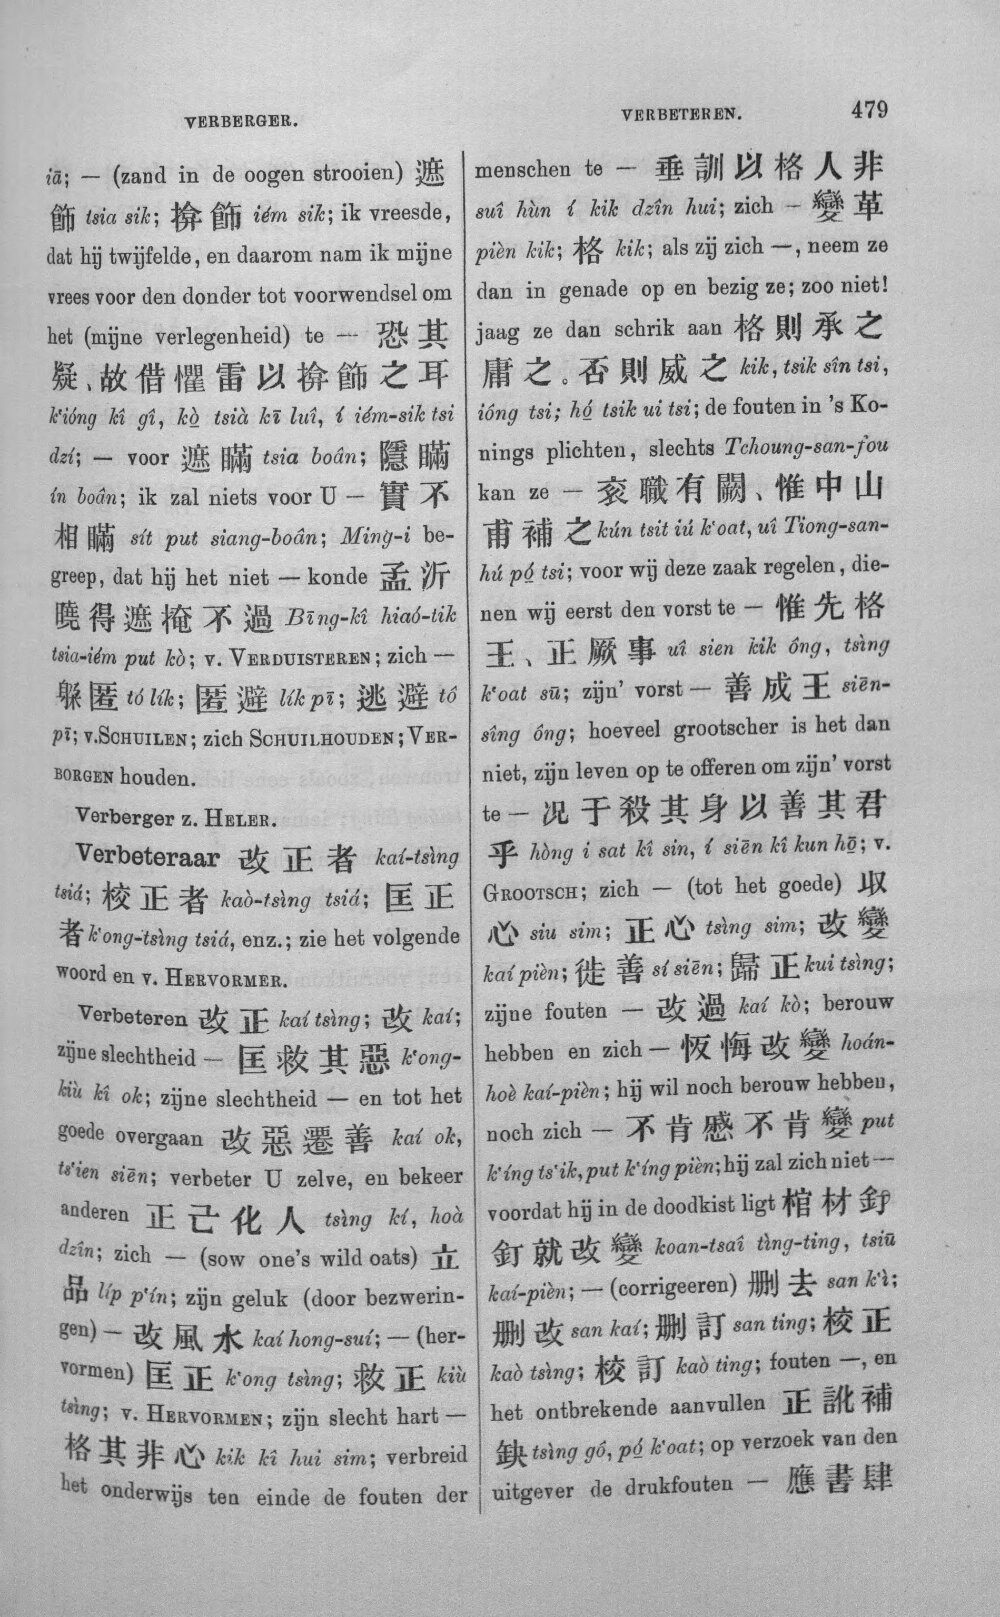 VERBERGER.
VERBETEREN. 479
iā; — (zand in de oogen strooien) 遮
飾 tsia sik; 揜飾 iém sik; ik vreesde,
dat hij twijfelde, en daarom nam ik mijne
vrees voor den donder tot voorwendsel om
het (mijne verlegenheid) te — 恐其
疑、故借懼雷以揜飾之耳
k‘ióng kî gî, kò̤ tsià kī luî, í iém-sik tsi
dzí; — voor 遮瞞 tsia boân; 隱瞞
ín boân; ik zal niets voor U — 實不
相瞞 sít put siang-boân; Ming-i be-
greep, dat hij het niet — konde 孟沂
曉得遮掩不過 Bīng-kî hiaó-tik
tsia-iém put kò; v. VERDUISTEREN; zich —
躱匿 tó lík; 匿避 lík pī; 逃避 tô
pī; v. SCHUILEN; zich SCHUILHOUDEN; VER-
BORGEN houden.
Verberger z. HELER.
Verbeteraar 改正者 kaí-tsìng
tsiá; 校正者 kaò-tsìng tsiá; 匡正
者 k‘ong-tsìng tsiá, enz.; zie het volgende
woord en v. HERVORMER.
Verbeteren 改正 kaí tsìng; 改 kaí;
zijne slechtheid — 匡救其惡 k‘ong-
kiù kî ok; zijne slechtheid — en tot het
goede overgaan 改惡遷善 kaí ok,
ts‘ien siēn; verbeter U zelve, en bekeer
anderen 正己化人 tsìng kí, hoà
dzîn; zich — (sow one's wild oats) 立
品 líp p‘ín; zijn geluk (door bezwerin-
gen) — 改風水 kaí hong-suí; — (her-
vormen) 匡正 k‘ong tsìng; 救正 kiù
tsìng; v. HERVORMEN; zijn slecht hart —
格其非心 kik kî hui sim; verbreid
het onderwijs ten einde de fouten der
menschen te — 垂訓以格人非
suî hùn í kik dzîn hui; zich — 變革
pièn kik; 格 kik; als zij zich —, neem ze
dan in genade op en bezig ze; zoo niet!
jaag ze dan schrik aan 格則承之
庸之。否則威之 kik, tsik sîn tsi,
ióng tsi; hó̤ tsik ui tsi; de fouten in 's Ko-
nings plichten, slechts Tchoung-san-fou
kan ze — 袞職有闕、惟中山
甫補之 kún tsit iú k‘oat, uî Tiong-san-
hú pó̤ tsi; voor wij deze zaak regelen, die-
nen wij eerst den vorst te — 惟先格
王、正厥事 uî sien kik ông, tsìng
k‘oat sū; zijn' vorst — 善成王 siēn-
sîng ông; hoeveel grootscher is het dan
niet, zijn leven op te offeren om zijn' vorst
te — 况于殺其身以善其君
乎 hòng i sat kî sin, í siēn kî kun hō̤; v.
GROOTSCH; zich — (tot het goede) 收
心 siu sim; 正心 tsìng sim; 改變
kaí pièn; 徙善 sí siēn; 歸正 kui tsìng;
zijne fouten — 改過 kaí kò; berouw
hebben en zich — 恆悔改變 hoán-
hoè kaí-pièn; hij wil noch berouw hebben,
noch zich — 不肯慼不肯變 put
k‘íng ts‘ik, put k‘íng pièn; hij zal zich niet —
voordat hij in de doodkist ligt 棺材釘
釘就改變 koan-tsaî tìng-ting, tsiū
kaí-pièn; — (corrigeeren) 删去 san k‘ì;
删改 san kaí; 删訂 san ting; 校正
kaò tsìng; 校訂 kaò ting; fouten —, en
het ontbrekende aanvullen 正訛補
缺 tsìng gó, pó̤ k‘oat; op verzoek van den
uitgever de drukfouten — 應書肆